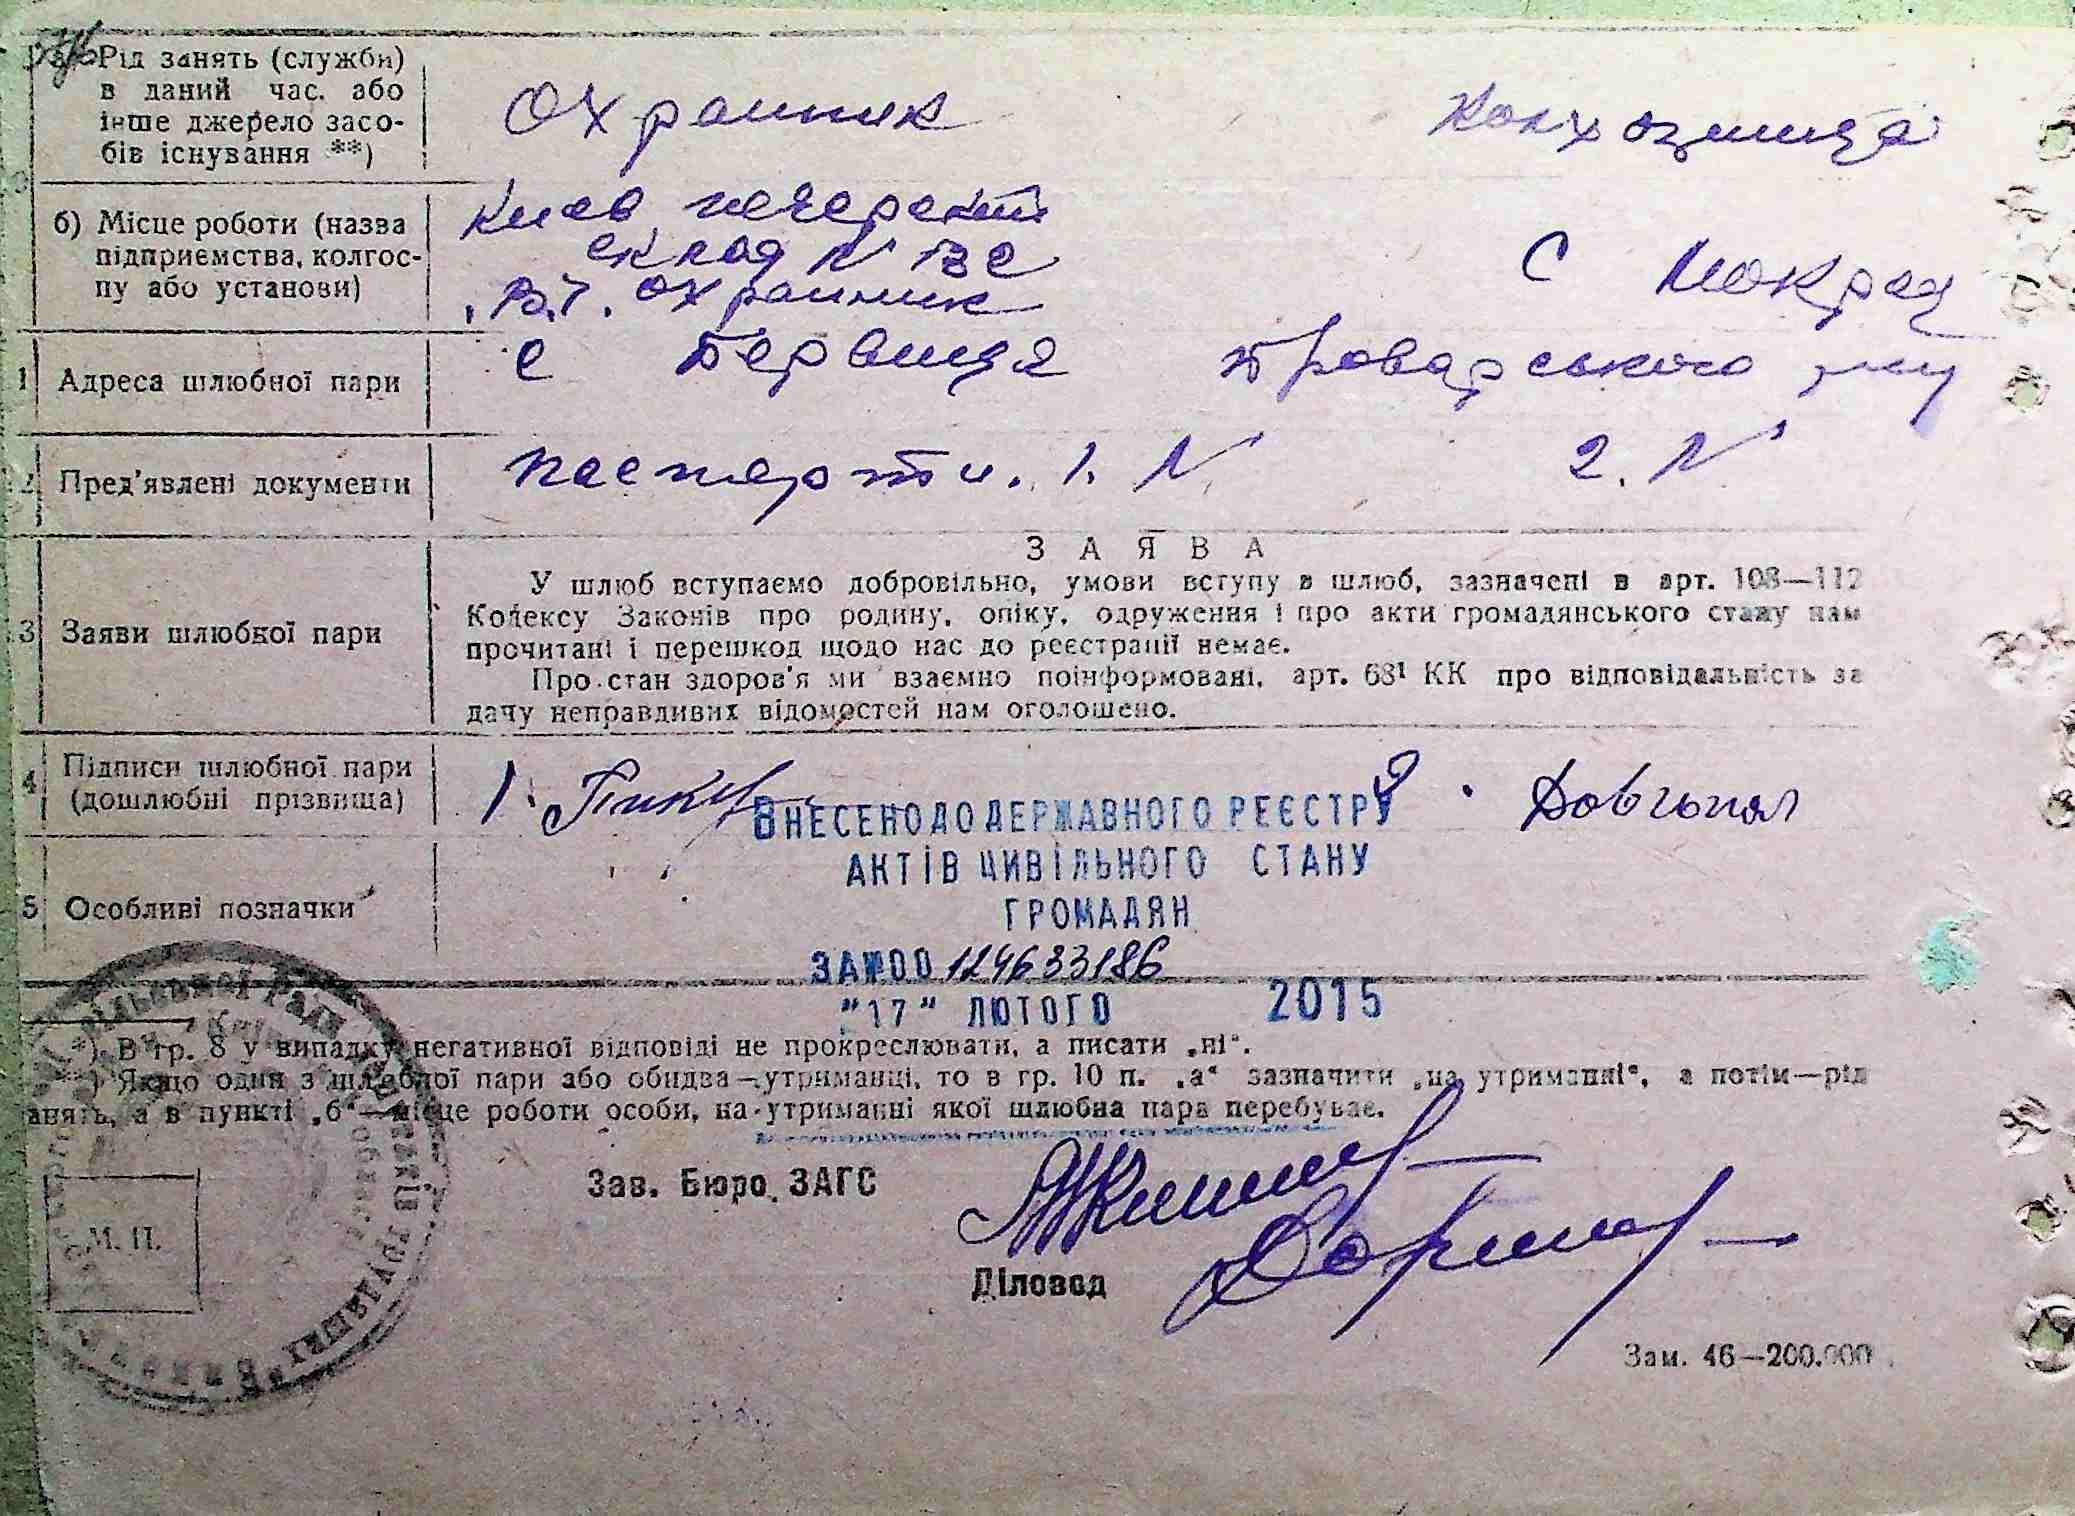 Рід занять (служби)
в даний час. або
інше джерело засо-
бів існування **)
Охранник
Колхозниця
б) Місце роботи (назва
підприємства, колгос-
пу або установи)
Киев
склад N
охранник
с
Адреса шлюбної пари
с Бервиця Броварського р-ну
Пред'явлені документи
паспорти. 1. N 2. N
ЗАЯВА
У шлюб вступаємо добровільно, умови вступу в шлюб, зазначені в арт. 108—112
3 Заяви шлюбної пари
Кодексу Законів про родину, опіку, одруження і про акти громадянського стану нам
прочитані і перешкод щодо нас до реєстрації немає.
Про стан здоров'я ми взаємно поінформовані, арт. 68¹ КК про відповідальність за
дачу неправдивих відомостей нам оголошено.
4 Підписи шлюбної пари
(дошлюбні прізвища)
1. 2. Довгопол
ВНЕСЕНО ДО ДЕРЖАВНОГО РЕЄСТРУ
АКТІВ ЦИВІЛЬНОГО СТАНУ
ГРОМАДЯН
5 Особливі позначки
ЗА №00124633186
"17" ЛЮТОГО 2015
*) В гр. 8 у випадку негативної відповіді не прокреслювати, а писати „ні“.
**) Якщо один з шлюбної пари або обидва—утриманці, то в гр. 10 п. „а“ зазначити „на утриманні“, а потім—рід
занять, а в пункті „б“—місце роботи особи, на утриманні якої шлюбна пара перебуває.
Зав. Бюро ЗАГС
М. П.
Діловод
Зам. 46—200.000